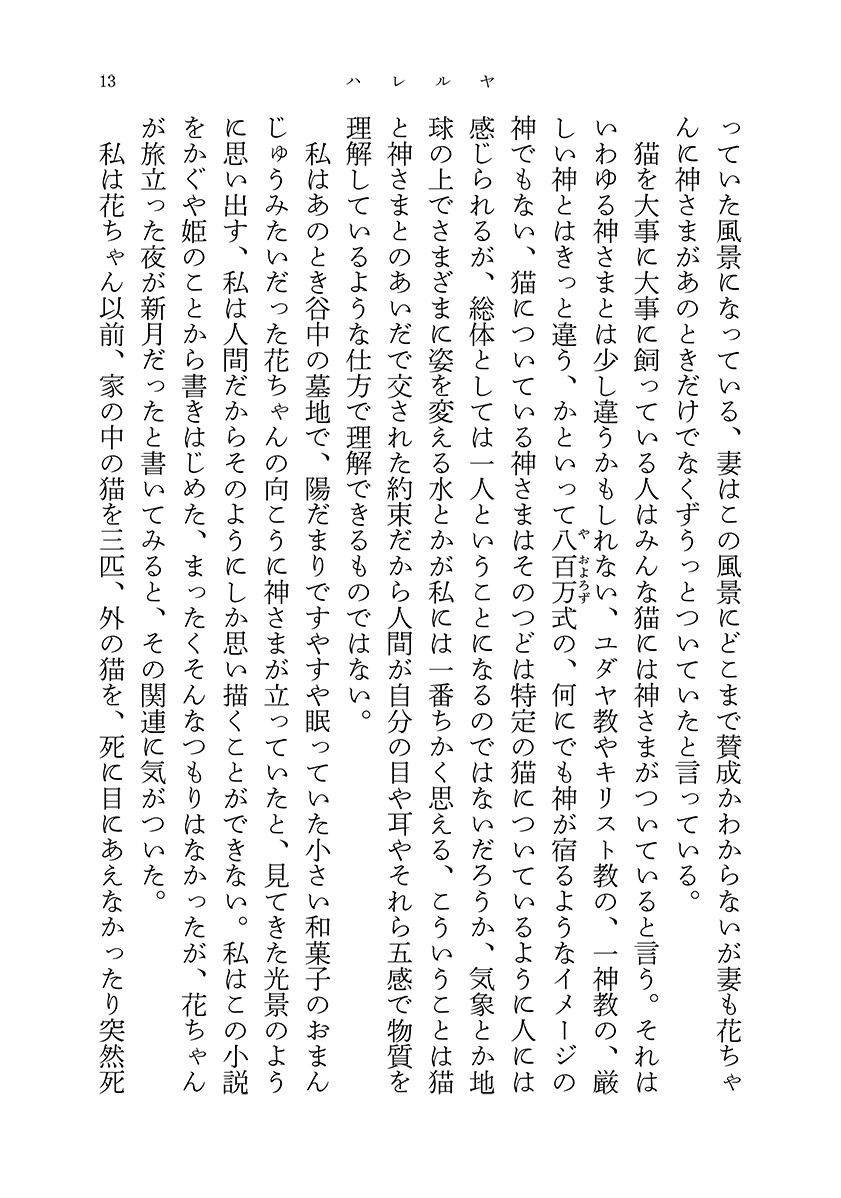 13
ハレルヤ
っていた風景になっている、妻はこの風景にどこまで賛成かわからないが妻も花ちゃ
んに神さまがあのときだけでなくずうっとついていたと言っている。
猫を大事に大事に飼っている人はみんな猫には神さまがついていると言う。それは
いわゆる神さまとは少し違うかもしれない、ユダヤ教やキリスト教の、一神教の、厳
しい神とはきっと違う、かといって八百万式の、何にでも神が宿るようなイメージの
やおよろず
神でもない、猫についている神さまはそのつどは特定の猫についているように人には
感じられるが、総体としては一人ということになるのではないだろうか、気象とか地
球の上でさまざまに姿を変える水とかが私には一番ちかく思える、こういうことは猫
と神さまとのあいだで交された約束だから人間が自分の目や耳やそれら五感で物質を
理解しているような仕方で理解できるものではない。
私はあのとき谷中の墓地で、陽だまりですやすや眠っていた小さい和菓子のおまん
じゅうみたいだった花ちゃんの向こうに神さまが立っていたと、見てきた光景のよう
に思い出す、私は人間だからそのようにしか思い描くことができない。私はこの小説
をかぐや姫のことから書きはじめた、まったくそんなつもりはなかったが、花ちゃん
が旅立った夜が新月だったと書いてみると、その関連に気がついた。
私は花ちゃん以前、家の中の猫を三匹、外の猫を、死に目にあえなかったり突然死